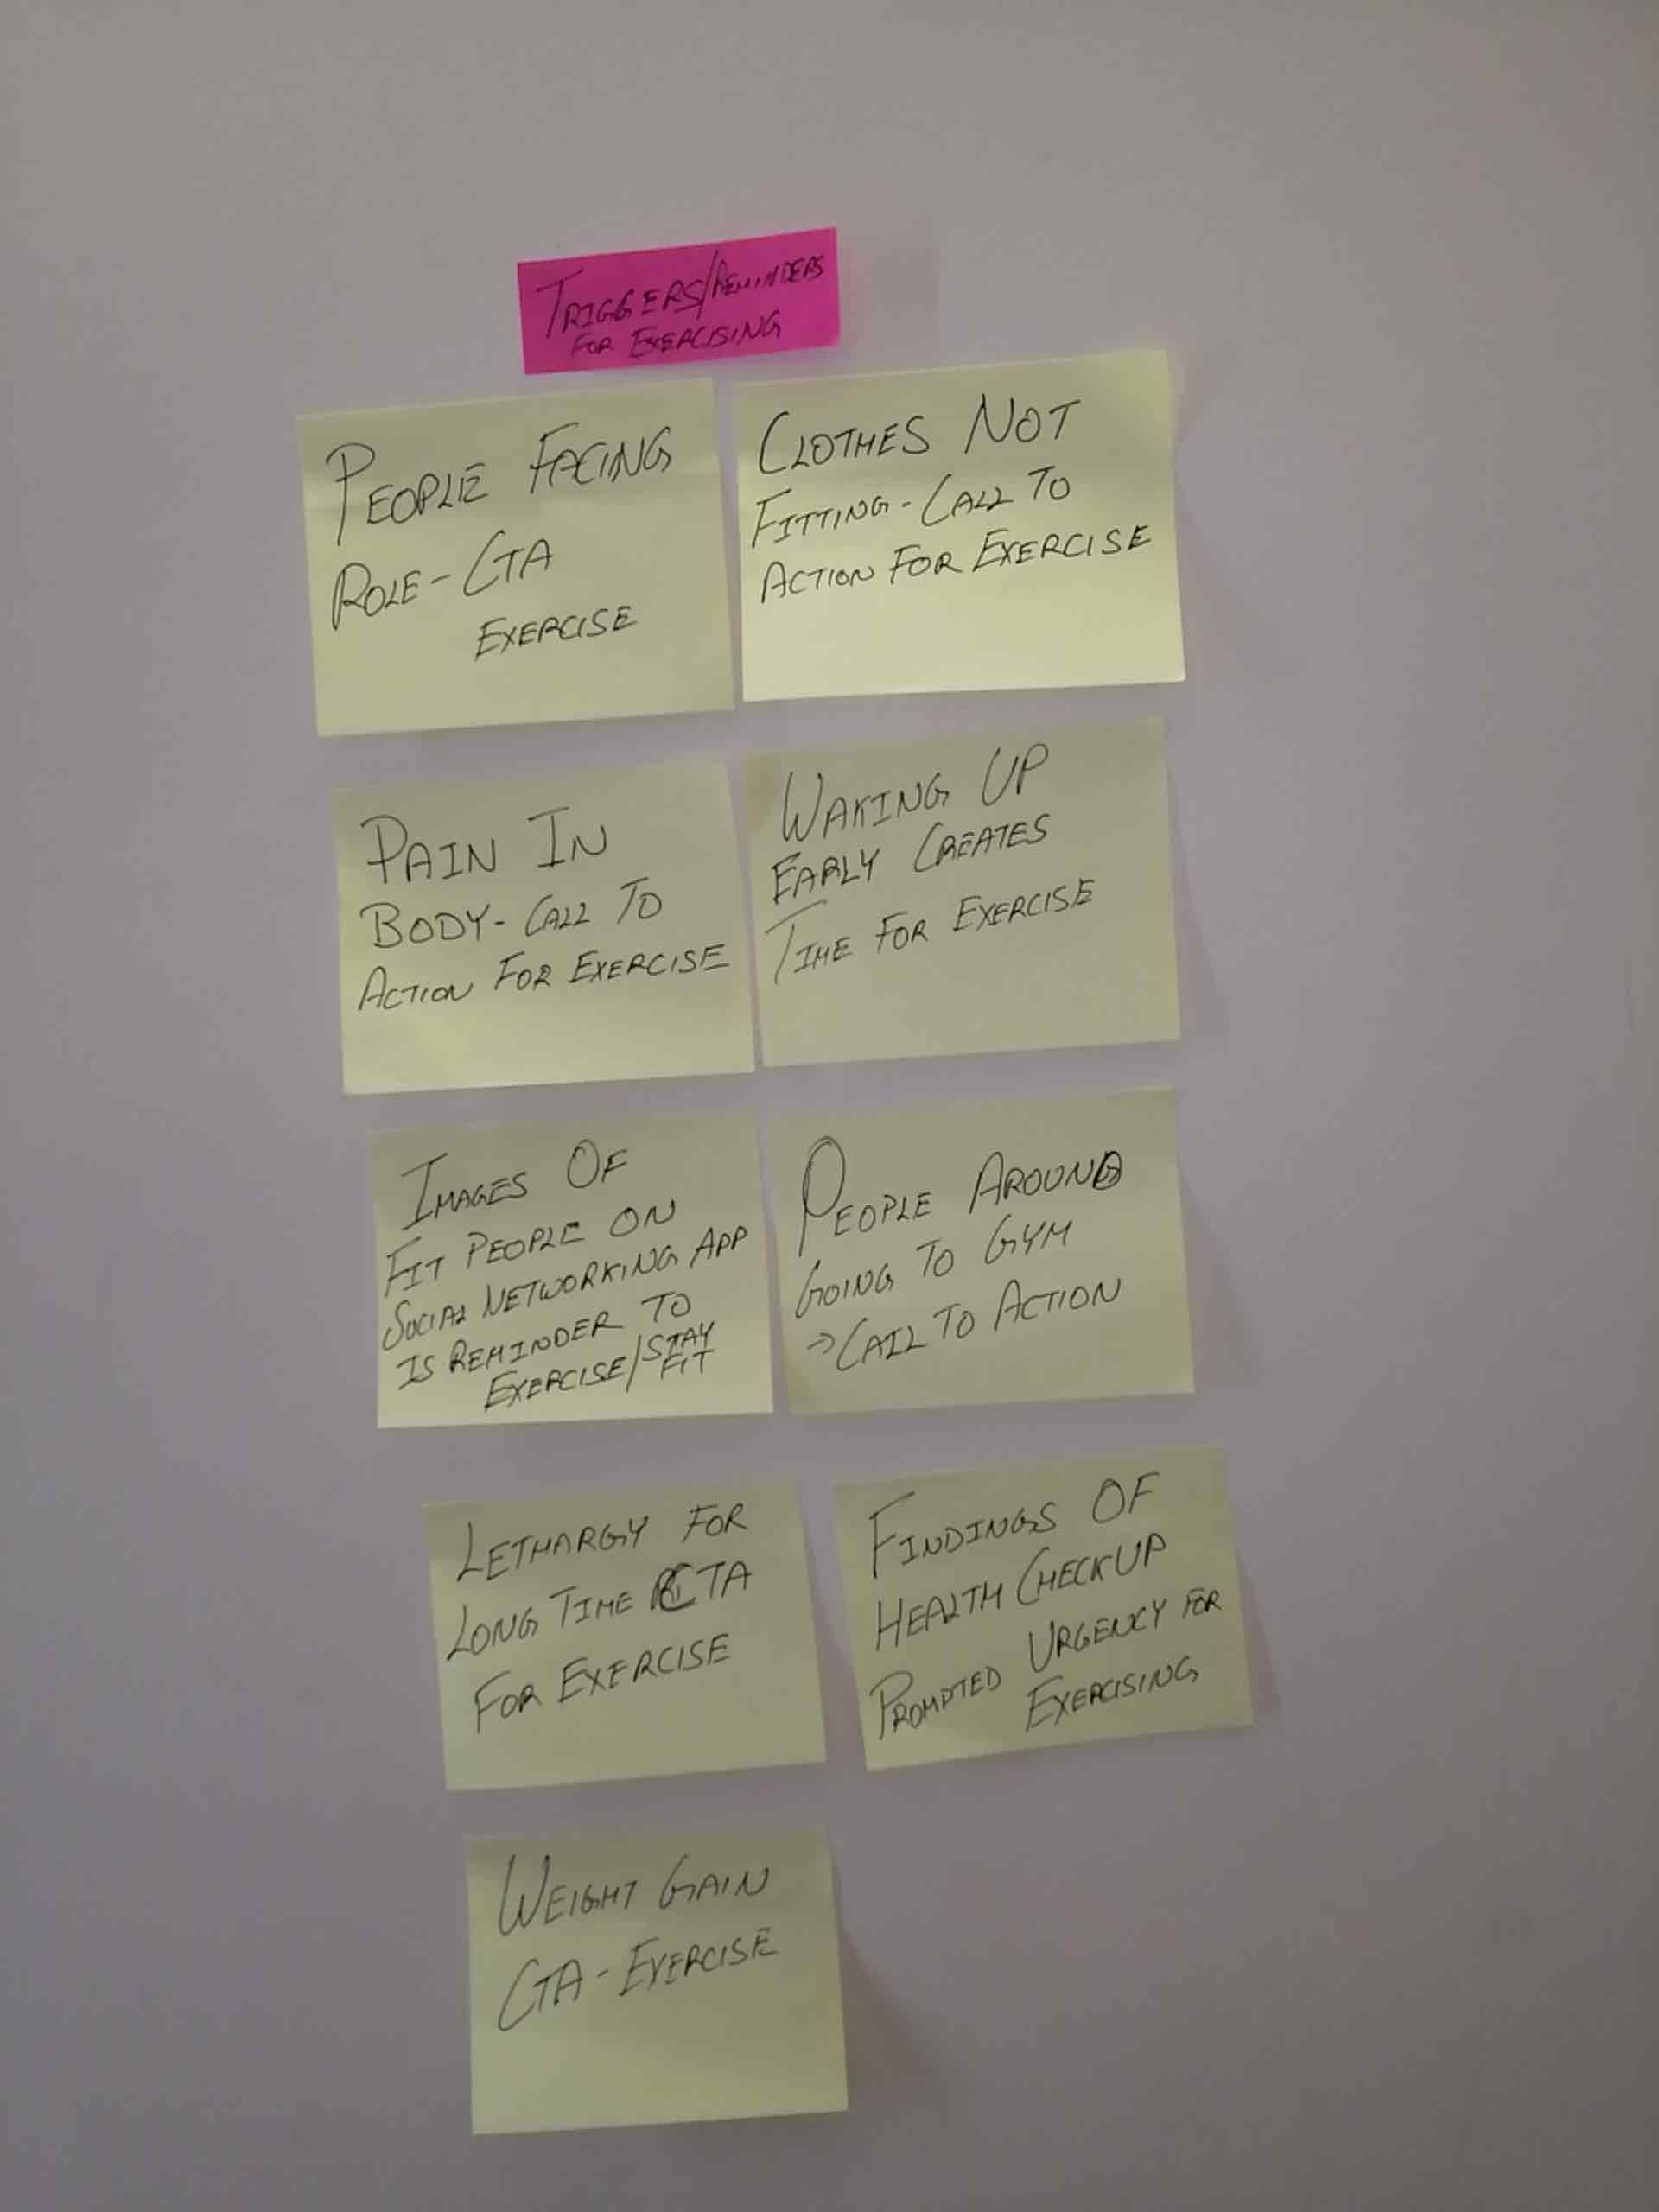 TRIGGERS/REMINDERS
FOR EXERCISING
PEOPLE FACING
ROLE - CTA
EXERCISE
CLOTHES NOT
FITTING - CALL TO
ACTION FOR EXERCISE
PAIN IN
BODY - CALL TO
ACTION FOR EXERCISE
WAKING UP
EARLY CREATES
TIME FOR EXERCISE
IMAGES OF
FIT PEOPLE ON
SOCIAL NETWORKING APP
IS REMINDER TO
EXERCISE/STAY
FIT
PEOPLE AROUND
GOING TO GYM
→ CALL TO ACTION
LETHARGY FOR
LONG TIME CTA
FOR EXERCISE
FINDINGS OF
HEALTH CHECKUP
PROMPTED URGENCY FOR
EXERCISING
WEIGHT GAIN
CTA - EXERCISE